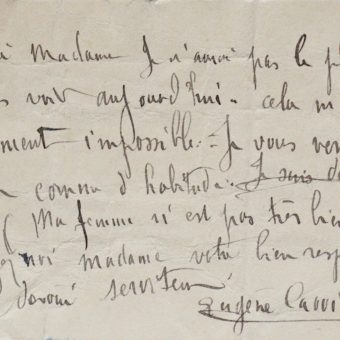 i Madame Je n'aurai pas le p
s voir aujourd'hui. cela m
ment impossible. Je vous ver
comme d'habitude. Je suis d
Ma femme n'est pas très bien
moi madame votre bien resp
dévoué serviteur
Eugène